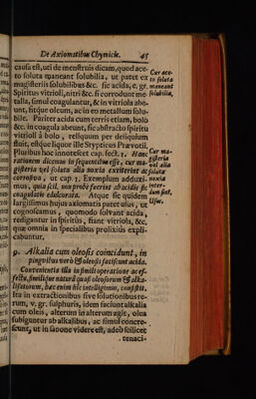 De Axiomatibus Chymicis. 45
causa est, uti de menstruis dicam, quod ace-
to soluta maneant solubilia, ut patet ex
magisteriis solubilibus &c. sic acida, e. gr.
Spiritus vitrioli, nitri &c. si corrodunt me-
talla, simul coagulantur, & in vitriola abe-
unt, fitque oleum, ac in eo metallum solu-
bile. Pariter acida cum terris etiam, bolo
&c. in coagula abeunt, sic abstractio spiritu
vitrioli à bolo, reliquum per deliquium
fluit, estque liquor ille Stypticus Prævotii.
Pluribus hoc innotescet cap. sect. 1. Ha-
rationem dicemus in sequentibus esse, cur ma-
gisteria vel soluta alia noxia existerint ac
corrosiva, ut cap. 1. Exemplum addam
mus, quia scil. non probè fuerint ab acidis
coagulatio edulcorata. Atque sic quidem
largissimus hujus axiomatis patet usus, ut
cognoscamus, quomodo solvant acida,
redigantur in spiritus, fiant vitriola, &c.
quæ omnia in specialibus prolixius expli-
cabuntur.
Cur ace-
to soluta
maneant
solubilia.
Cur ma-
gisteria
vel alia
soluta
noxia
inter-
dum sint,
9. Alkalia cum oleosis coincidunt, in
pinguibus verò & oleosis facescunt acida.
Convenientia illa in simili operatione ac ef-
fectu, similique naturâ quasi oleosorum & alka-
lisatorum, hæc enim hîc intelligimus, consistit.
Ita in extractionibus sive solutionibus re-
rum, v. gr. sulphuris, idem faciunt alkalia
cum oleis, alterum in alterum agit, olea
subiguntur ab alkalibus, ac simul concre-
scunt, ut in sapone videre est, adeò scilicet
tenaci-